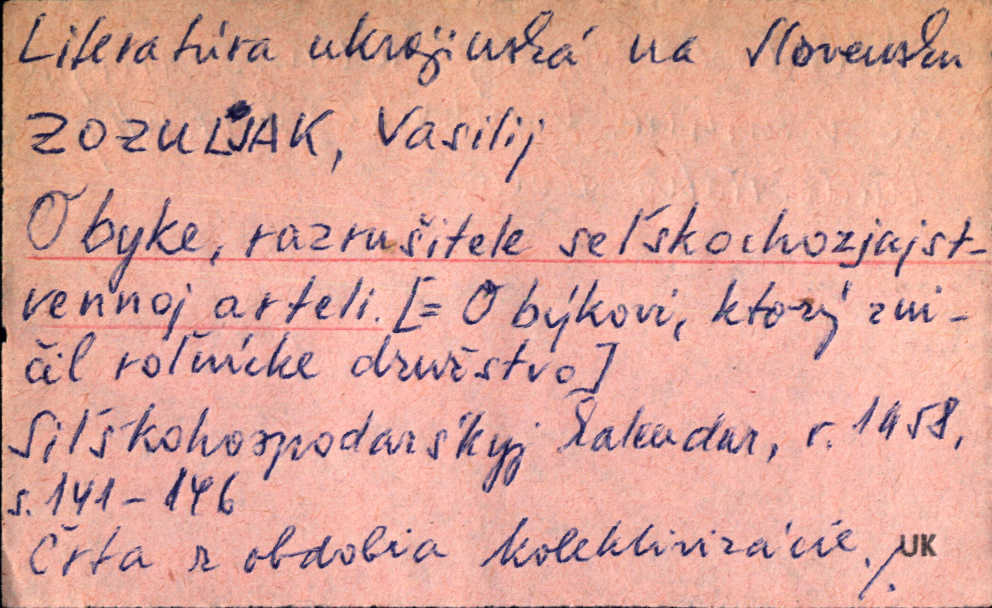 Literatúra ukrajinská na Slovensku
ZOZULJAK, Vasilij
O byke, razrušitele seľskochozjajst-
vennoj arteli. [= O býkovi, ktorý zni-
čil roľnícke družstvo]
Siľśkohospodarśkyj kalendar, r. 1958,
s. 141-146
Črta z obdobia kolektivizácie. /.
UK